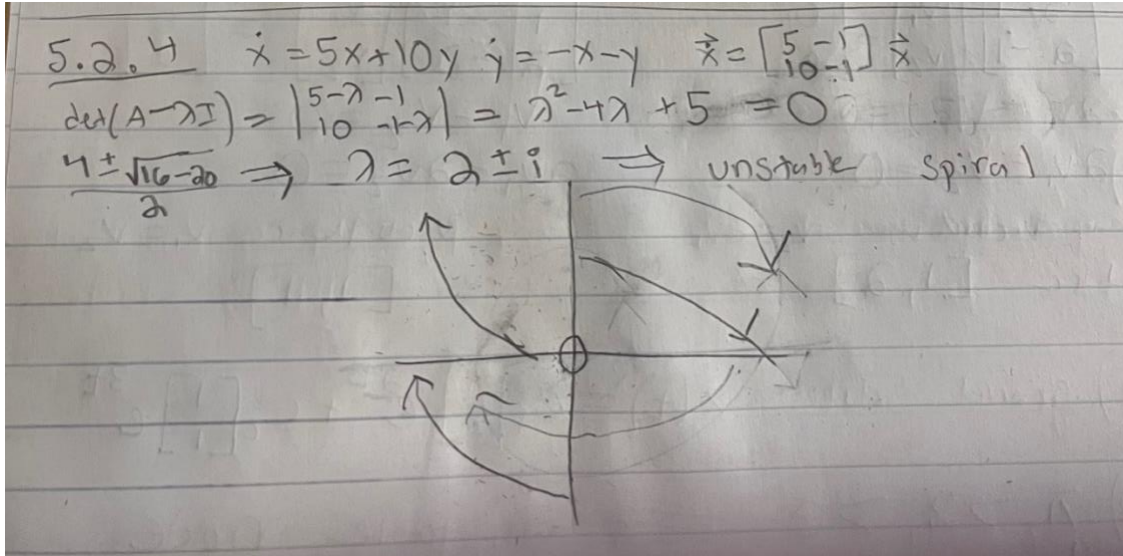 5.2.4 ẋ = 5x+10y ẏ = -x-y \vec{ẋ} = [5 -1; 10 -1] \vec{x}
det(A-λI) = |5-λ -1; 10 -1-λ| = λ²-4λ+5 = 0
(4 ± √(16-20))/2 ⇒ λ = 2 ± i ⇒ unstable spiral